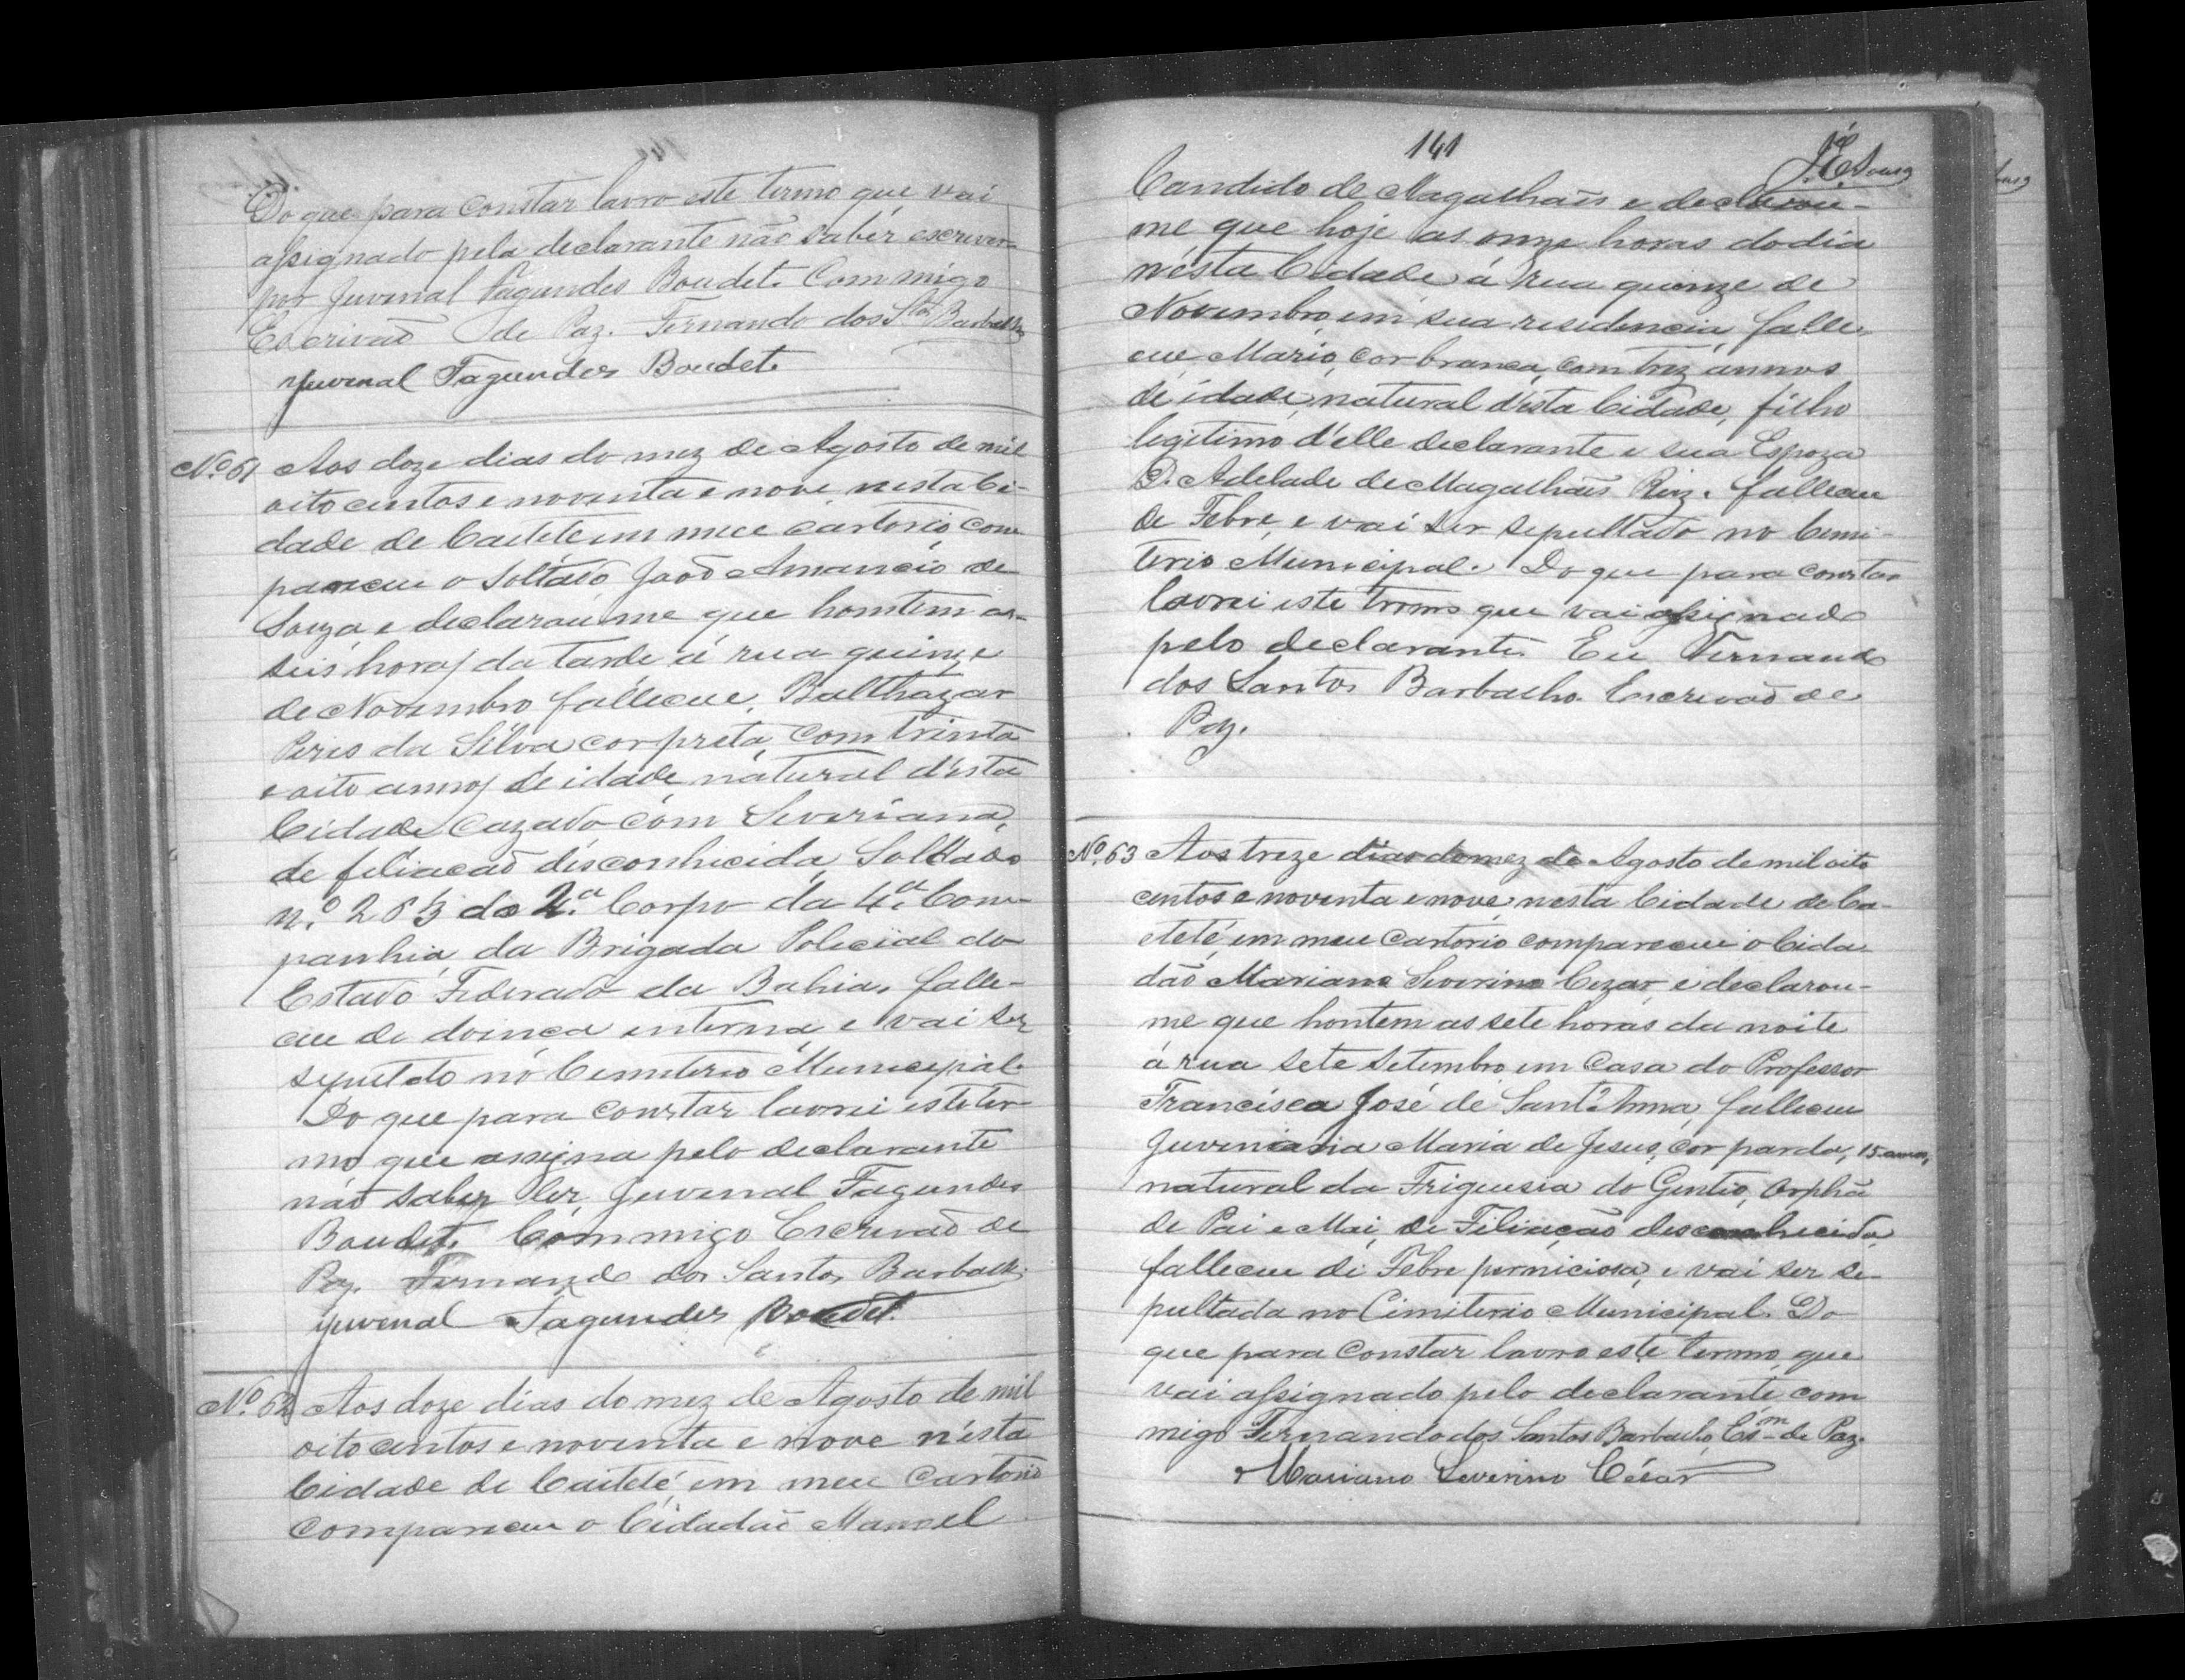 Do que para constar lavro este termo que vai
assignado pela declarante não saber escrever
por Juvenal Fagundes Boudet. Commigo
Escrivaõ de Paz. Fernando dos Stos Barbalho
Juvenal Fagundes Boudet
Nº 61 Aos doze dias do mez de Agosto de mil
oito centos e noventa e nove, nesta Ci-
dade de Caiteté em meu cartorio, com
pareceu o Soltado João Amancio de
Souza e declarou me que hontem as
seis horas da tarde á rua quinze
de Novembro falleceu, Balthazar
Peris da Silva cor preta, com trinta
e oito annos de idade, natural d'esta
Cidade Cazado com Severiana,
de filiacaõ desconhecida, Soldado
n.º 263 do 2.º Corpo da 4.ª Com-
panhia da Brigada Policial do
Estado Federado da Bahia, falle-
ceu de doença interna, e vai ser
sepultdo no Cemiterio Municipal.
Do que para constar lavrei este ter
mo que assigna pelo declarante
não saber ler, Juvenal Fagundes
Boudet. Commigo Escrivaõ de
Paz. Fernando dos Santos Barbalho
Juvenal Fagundes Boudet.
Nº 62 Aos doze dias do mez de Agosto de mil
oito centos e noventa e nove n'esta
Cidade de Caiteté, em meu Cartorio
compareceu o Cidadaõ Manoel
141
Candido de Magalhães e declarou-
me que hoje as onze horas do dia
nésta Cidade á rua quinze de
Novembro em sua residencia, falle-
ceu, Mario, cor branca, com trez annos
de idade, natural d'esta Cidade, filho
legitimo d'elle declarante e sua Espoza
D. Adelade de Magalhães. falleceu
de Febre, e vai ser sepultado no Cemi-
terio Municipal. Do que para constar
lavrei este termo que vai assignado
pelo declarante. Eu Fernando
dos Santos Barbalho. Escrivaõ de
Paz.
Nº 63 Aos treze dias do mez de Agosto de mil oito
centos e noventa e nove, nesta Cidade de Ca-
eteté, em meu Cartorio compareceu o Cida-
dão Mariano Severino Cezar, e declarou-
me que hontem as sete horas da noite
á rua sete Setembro em Casa do Professor
Francisco José de Sant'Anna, falleceu
Maria de Jesus, cor parda, 15 annos,
natural da Friguesia do Gentio, Orphã
de Pai e Mai, de Filiação desconhecida,
falleceu de Febre perniciosa, e vai ser se-
pultada no Cimiterio Municipal. Do
que para constar lavro este termo que
vai assignado pelo declarante com
migo Fernando dos Santos Barbalho, Esm de Paz.
Mariano Severino César